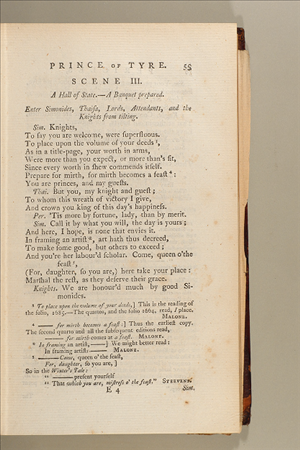 PRINCE OF TYRE. 55
SCENE III.
A Hall of State.—A Banquet prepared.
Enter Simonides, Thaisa, Lords, Attendants, and the
Knights from tilting.
Sim. Knights,
To say you are welcome, were superfluous.
To place upon the volume of your deeds ³,
As in a title-page, your worth in arms,
Were more than you expect, or more than's fit,
Since every worth in shew commends itself.
Prepare for mirth, for mirth becomes a feast ⁴:
You are princes, and my guests.
Thai. But you, my knight and guest;
To whom this wreath of victory I give,
And crown you king of this day's happiness.
Per. 'Tis more by fortune, lady, than by merit.
Sim. Call it by what you will, the day is yours;
And here, I hope, is none that envies it.
In framing an artist, art hath thus decreed,
To make some good, but others to exceed;
And you're her labour'd scholar. Come, queen o'the
feast,
(For, daughter, so you are,) here take your place:
Marshal the rest, as they deserve their grace.
Knights. We are honour'd much by good Si-
monides.
To place upon the volume of your deeds,] This is the reading of
the folio, The quartos, and the folio 1664, read, I place.
MALONE.
for mirth becomes a feast:] Thus the earliest copy.
The second quarto and all the subsequent editions read,
for mirth comes at a feast. MALONE.
In framing an artist,—] We might better read:
In framing artists— MALONE.
Come, queen o'the feast,
For, daughter, so you are,]
So in the Winter's Tale:
"—— present yourself
"That which you are, mistress o' the feast." STEEVENS.
E 4
Sim.